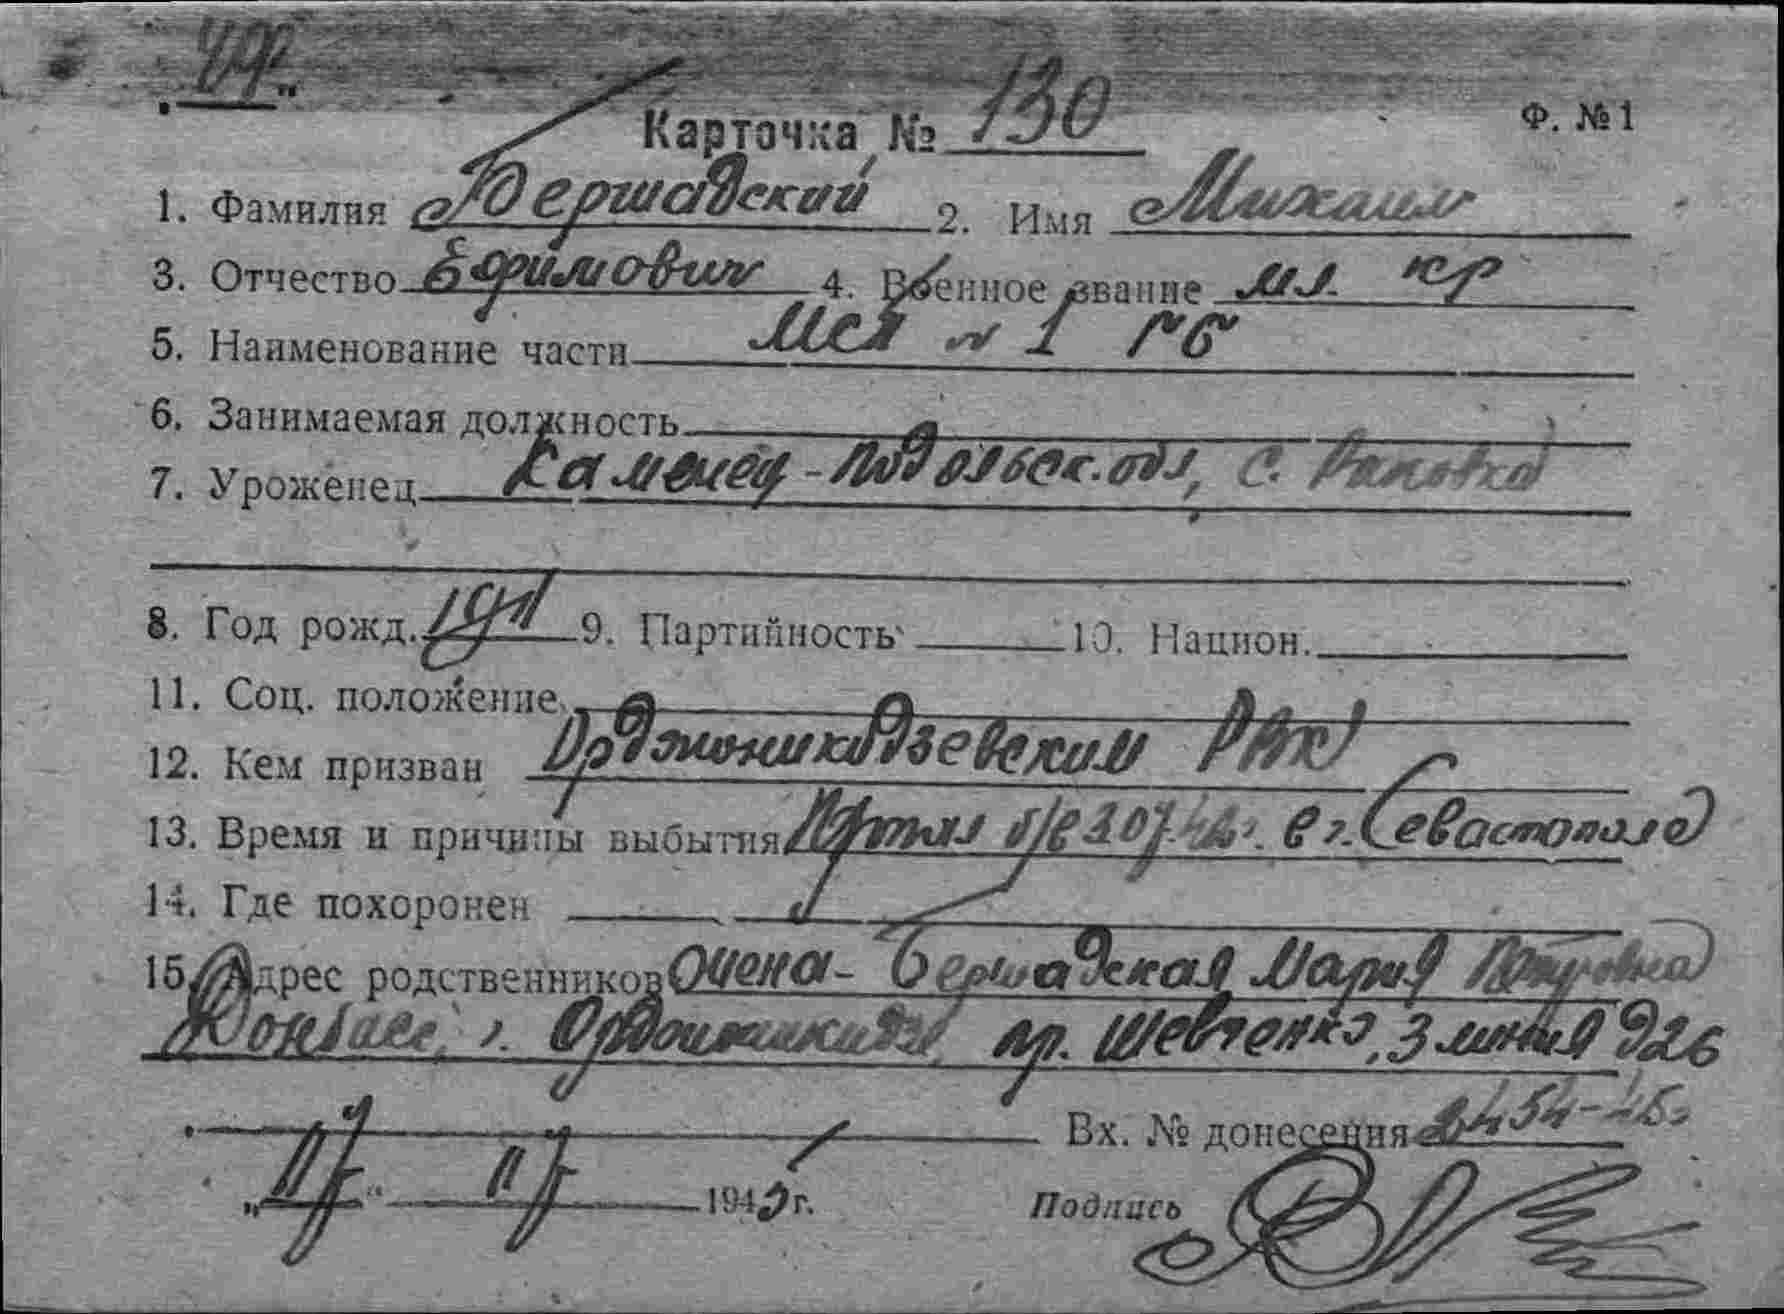 Карточка № 130 Ф. № 1
1. Фамилия Бершадский 2. Имя Михаил
3. Отчество Ефимович 4. Военное звание мл. кр
5. Наименование части № 1
6. Занимаемая должность
7. Уроженец Каменец-Подольск. обл, с.
8. Год рожд. 1911 9. Партийность 10. Национ.
11. Соц. положение
12. Кем призван Орджоникидзевским РВК
13. Время и причины выбытия в г. Севастополе
14. Где похоронен
15. Адрес родственников жена - Бершадская Мария Петровна
Донбасс, г. Орджоникидзе, пр. Шевченко, 3 линия д 26
Вх. № донесения
1945 г. Подпись